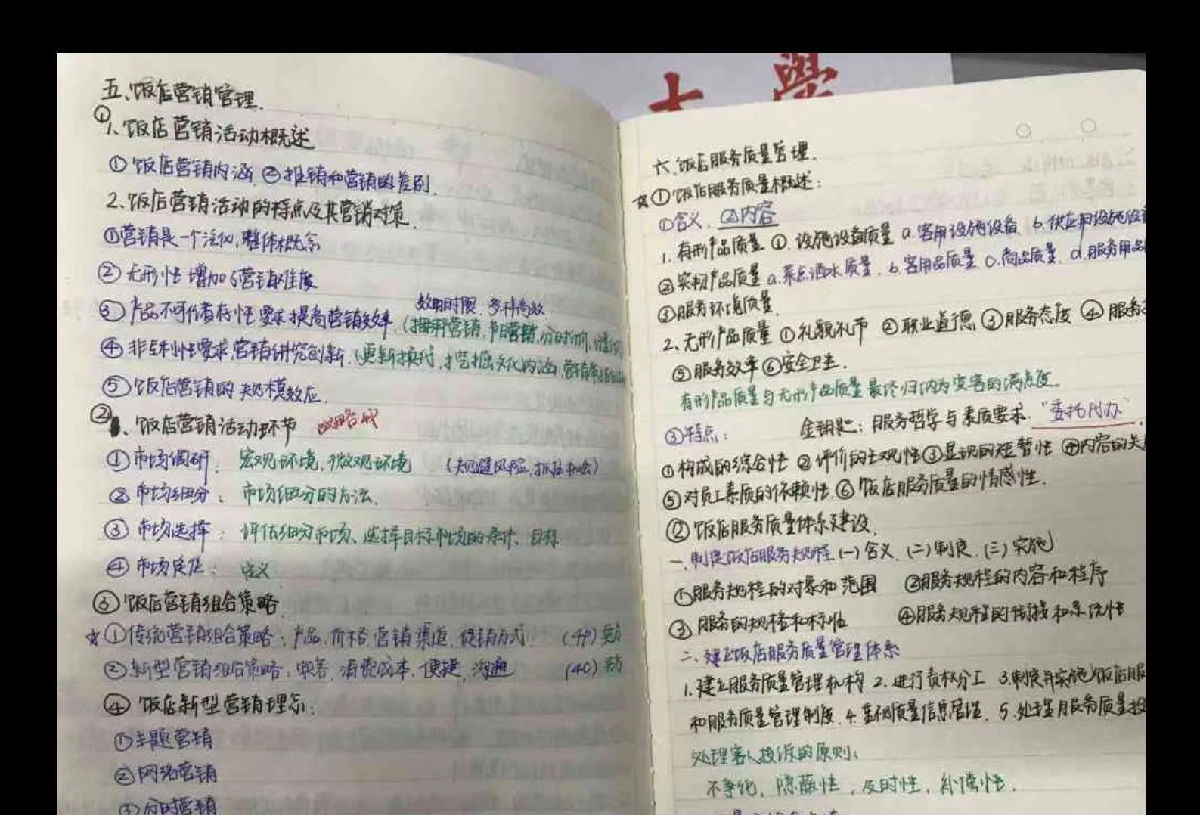 大學
五.饭店营销管理.
① 1.饭店营销活动概述
①饭店营销内涵 ②推销和营销的差别.
2.饭店营销活动的特点及其营销对策.
①营销是一个活动,整体概念
②无形性增加了营销难度
效用时限、多种高效
③产品不可储存性要求提高营销效率
④非专利性要求营销讲究创新(更新换代,挖掘文化内涵,
⑤饭店营销的规模效应.
② 、饭店营销活动环节
①市场调研:宏观环境,微观环境 (规避风险,抓住机会)
②市场细分:市场细分的方法.
③市场选择:评估细分市场、选择目标市场的条件、目标
④市场定位:含义
③饭店营销组合策略.
☆①传统营销组合策略:产品、价格、营销渠道、促销方式 (4P)
②新型营销组合策略:顾客、消费成本、便捷、沟通 (4C)
④饭店新型营销理念:
①主题营销
②网络营销
③分时营销
六.饭店服务质量管理.
☆①饭店服务质量概述:
①含义.②内容
1.有形产品质量①.设施设备质量 a.客用设施设备 b.供应用设施设备
②实物产品质量 a.菜点酒水质量.b.客用品质量 c.商品质量.d.服务用品
③服务环境质量.
2.无形产品质量 ①礼貌礼节 ②职业道德 ③服务态度 ④服务
⑤服务效率 ⑥安全卫生.
有形产品质量与无形产品质量最终归纳为宾客的满意度.
③特点: 金钥匙:服务哲学与素质要求."委托代办".
①构成的综合性 ②评价的主观性 ③显现的短暂性 ④内容的关
⑤对员工素质的依赖性.⑥饭店服务质量的情感性.
②饭店服务质量体系建设.
一.制定饭店服务规程(一)含义.(二)制定.(三)实施
①服务规程的对象和范围 ②服务规程的内容和程序
③服务的规格和标准 ④服务规程的衔接和系统性
二、建立饭店服务质量管理体系
1.建立服务质量管理机构 2.进行责权分工 3.制定并实施饭店服
和服务质量管理制度.4.重视质量信息管理.5.处理服务质量投
处理客人投诉的原则:
不争论,隐蔽性,及时性,补偿性.